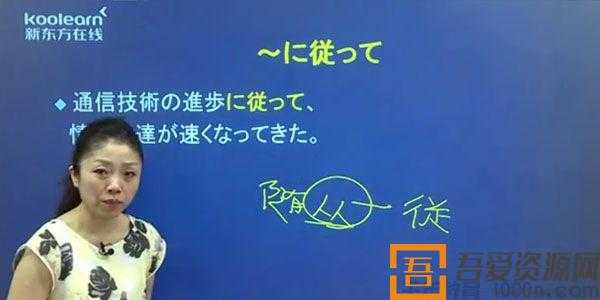 koolearn
新东方在线
～に従って
◆ 通信技術の進歩に従って、
達が速くなってきた。
随从 従
吾
吾爱资源网
1000n.com